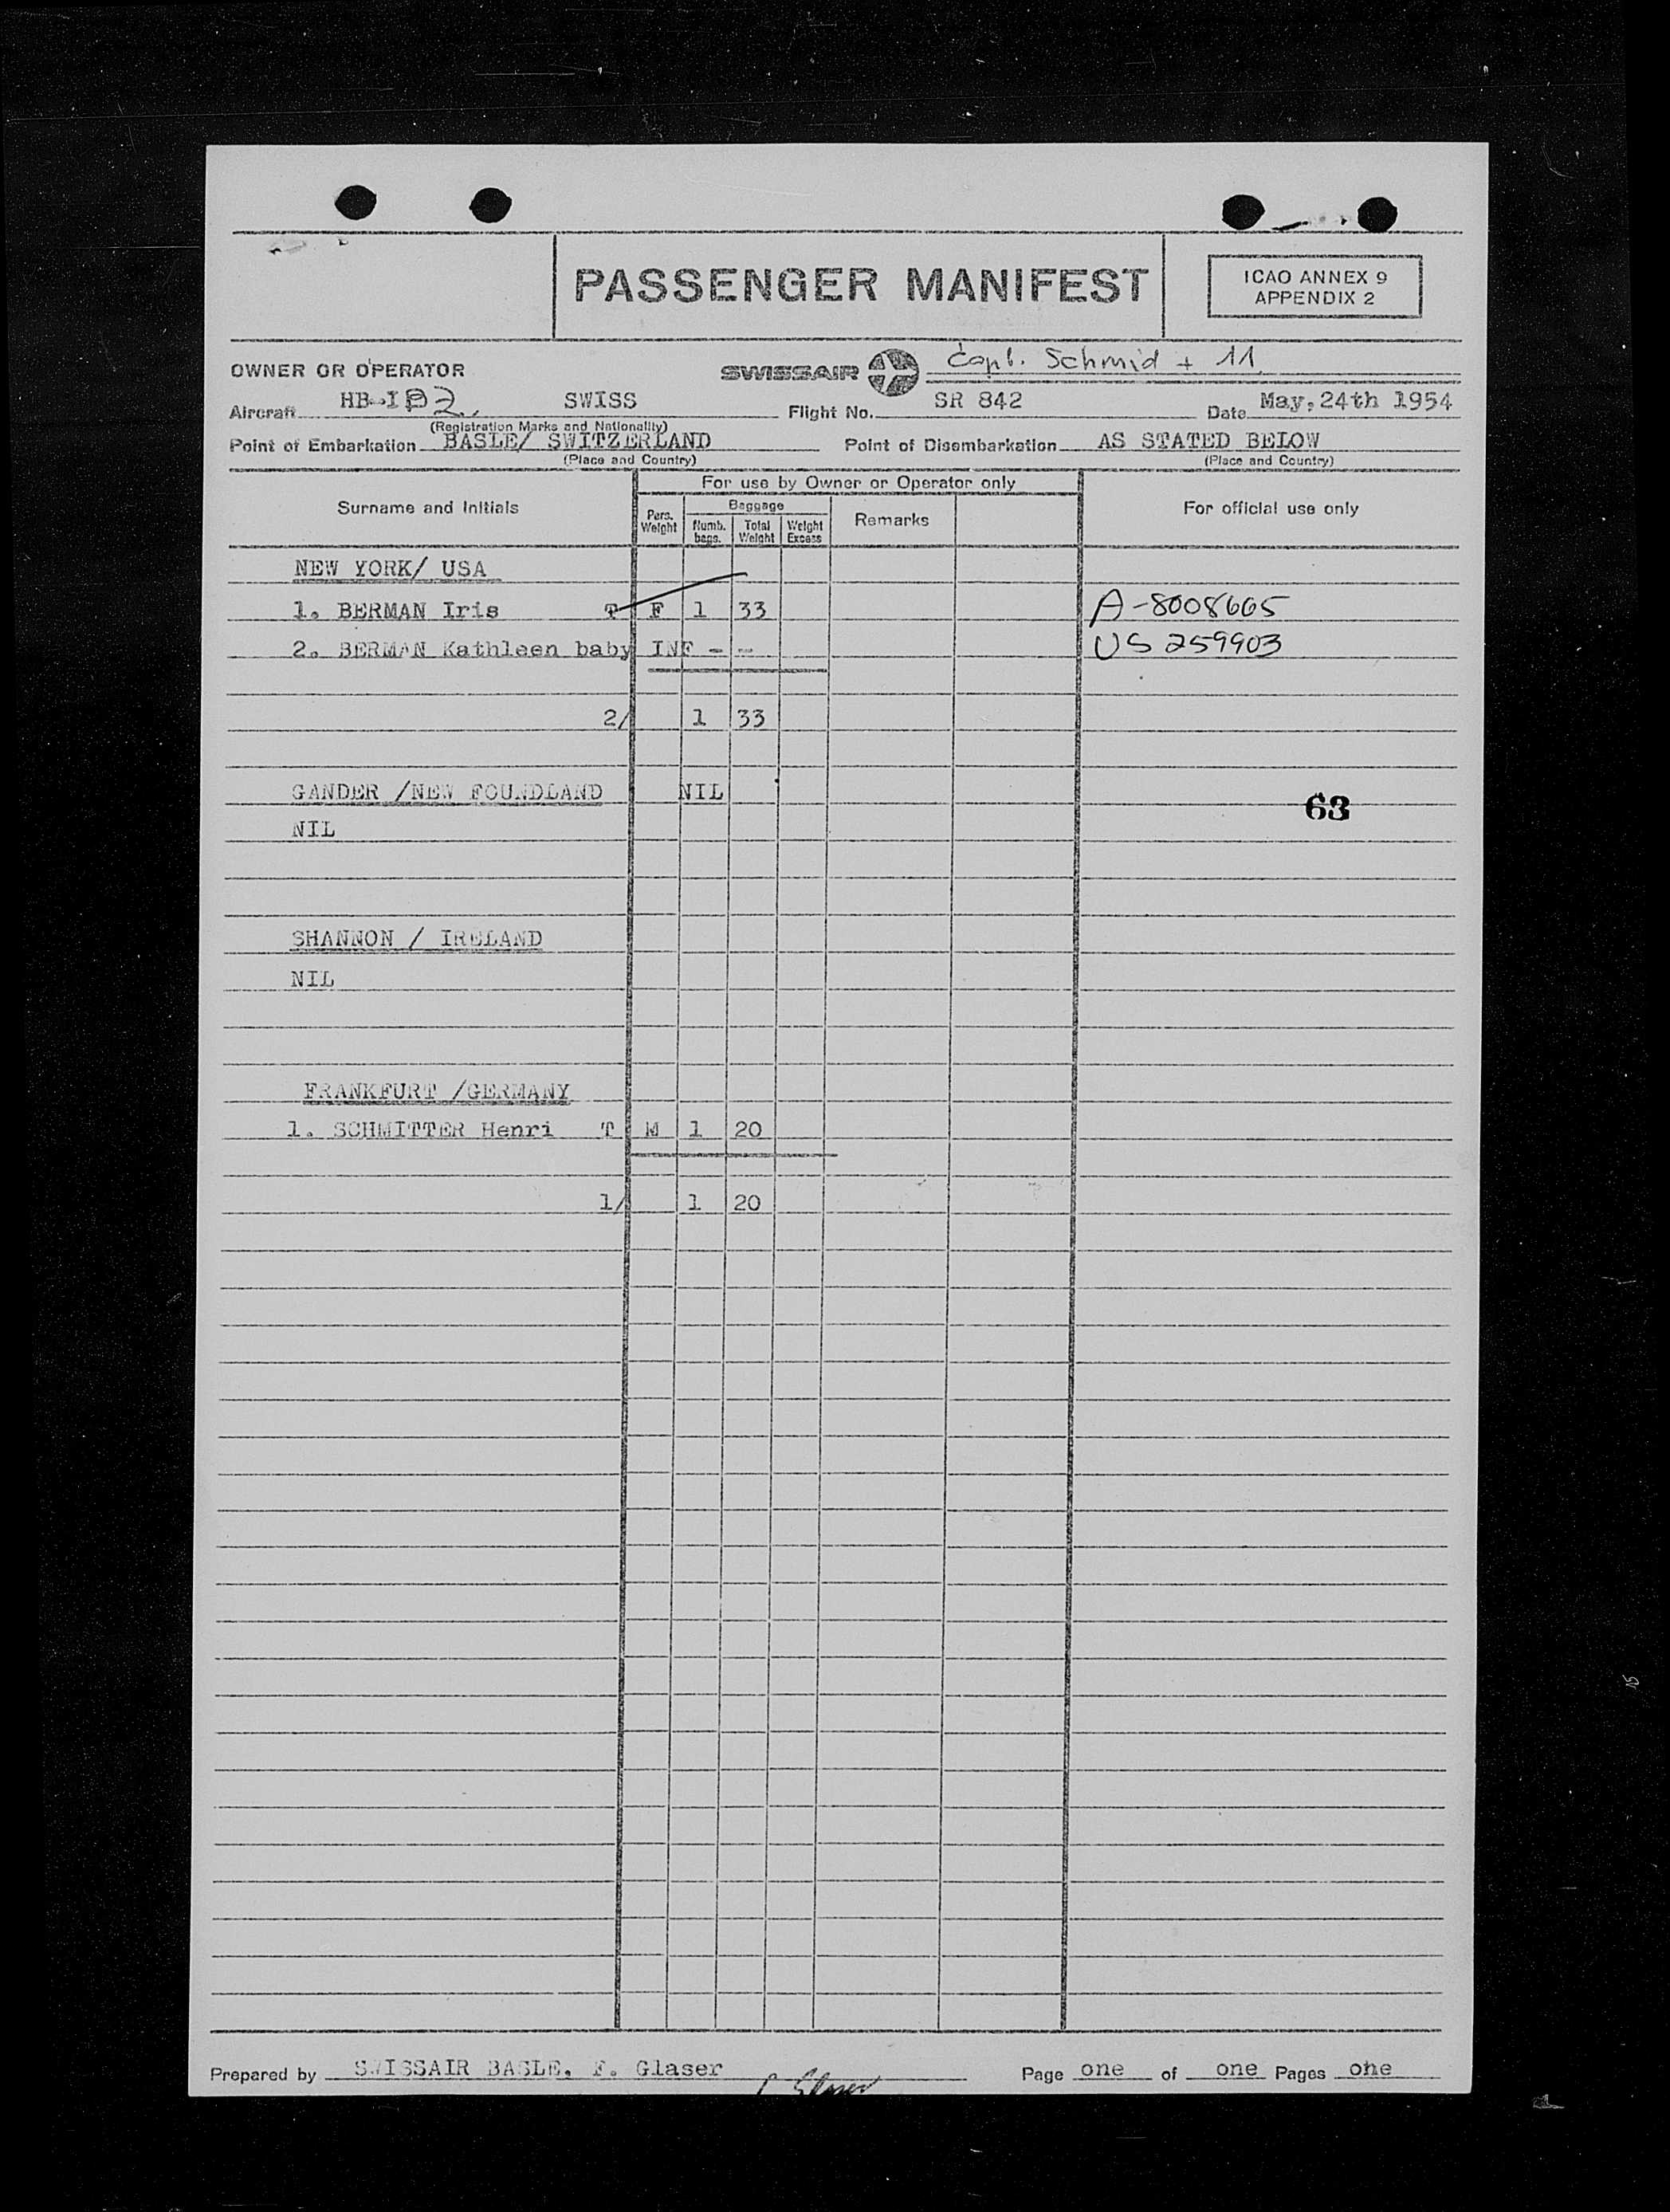 PASSENGER MANIFEST
ICAO ANNEX 9
APPENDIX 2
OWNER OR OPERATOR
SWISSAIR
Capt. Schmid + 11
Aircraft HB-I SWISS
Flight No. SR 842
Date May, 24th 1954
(Registration Marks and Nationality)
Point of Embarkation BASLE/ SWITZERLAND
Point of Disembarkation AS STATED BELOW
(Place and Country)
(Place and Country)
Surname and Initials
For use by Owner or Operator only
For official use only
Pers. Weight
Baggage
Numb. bags.
Total Weight
Weight Excess
Remarks
NEW YORK/ USA
1. BERMAN Iris T F 1 33 A-8008665
2. BERMAN Kathleen baby INF - - US 259903
2/ 1 33
GANDER /NEW FOUNDLAND NIL
63
NIL
SHANNON / IRELAND
NIL
FRANKFURT /GERMANY
1. SCHMITTER Henri T M 1 20
1/ 1 20
Prepared by SWISSAIR BASLE, F. Glaser
Page one of one Pages one